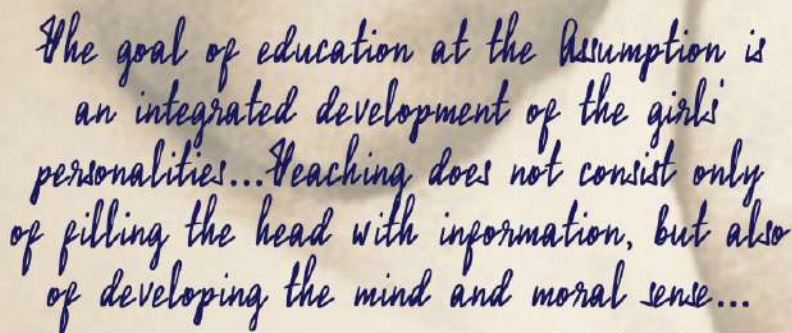 The goal of education at the Assumption is
an integrated development of the girls'
personalities...Teaching does not consist only
of filling the head with information, but also
of developing the mind and moral sense...